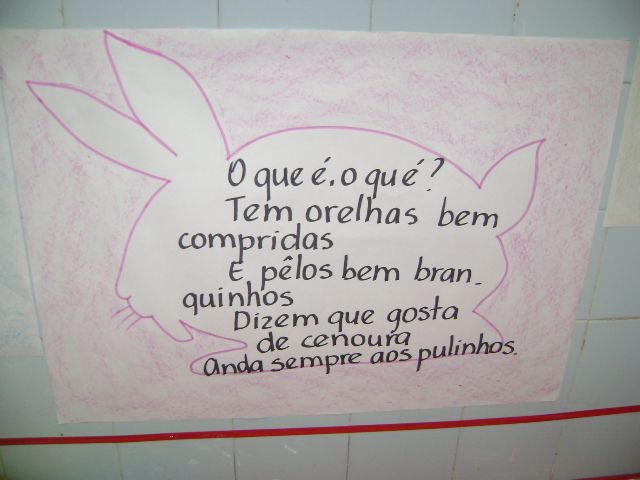 O que é, o qué?
Tem orelhas bem
compridas
E pêlos bem bran-
quinhos
Dizem que gosta
de cenoura
Anda sempre aos pulinhos.